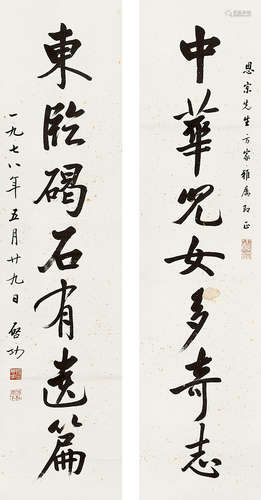 恩宗先生方家雅属即正
中華兒女多奇志
東臨碣石有遺篇
一九七八年五月廿九日 啓功